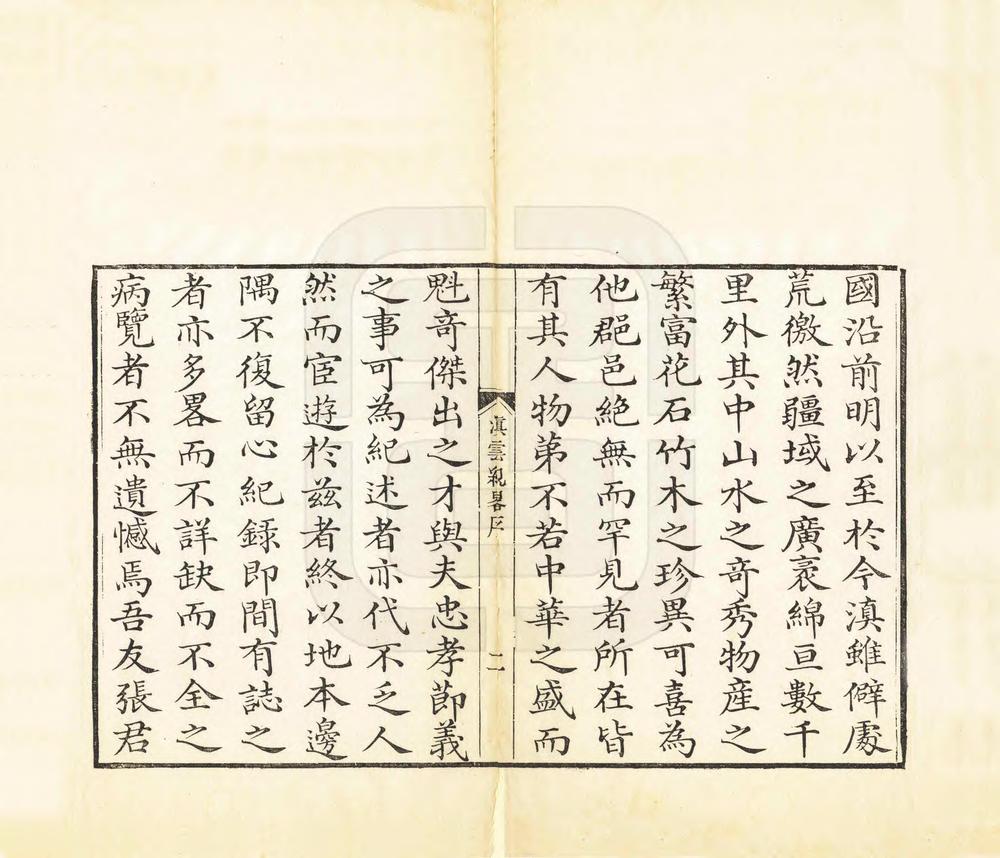 國沿前明以至於今滇雖僻處
荒徼然疆域之廣袤綿亘數千
里外其中山水之奇秀物産之
繁富花石竹木之珍異可喜為
他郡邑絶無而罕見者所在皆
有其人物苐不若中華之盛而
滇雲紀畧序
二
魁奇傑出之才與夫忠孝節義
之事可為紀述者亦代不乏人
然而宦遊於兹者終以地本邊
隅不復留心紀録即間有誌之
者亦多畧而不詳缺而不全之
病覽者不無遺憾焉吾友張君